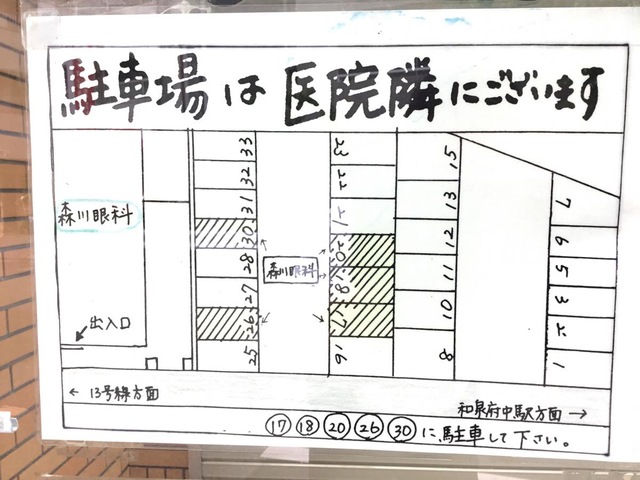 駐車場は医院隣にございます
森川眼科
出入口
33
32
31
30
28
27
26
25
森川眼科
23
22
21
20
18
17
16
15
13
12
11
10
8
7
6
5
3
2
1
← 13号線方面
和泉府中駅方面 →
⑰ ⑱ ⑳ ㉖ ㉚ に駐車して下さい。